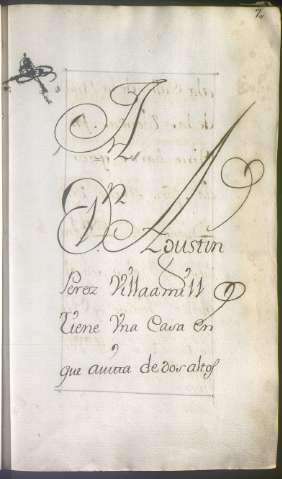 A
D.n Agustin
Perez Villaamill
tiene Vna Casa en
que auita de dos altos